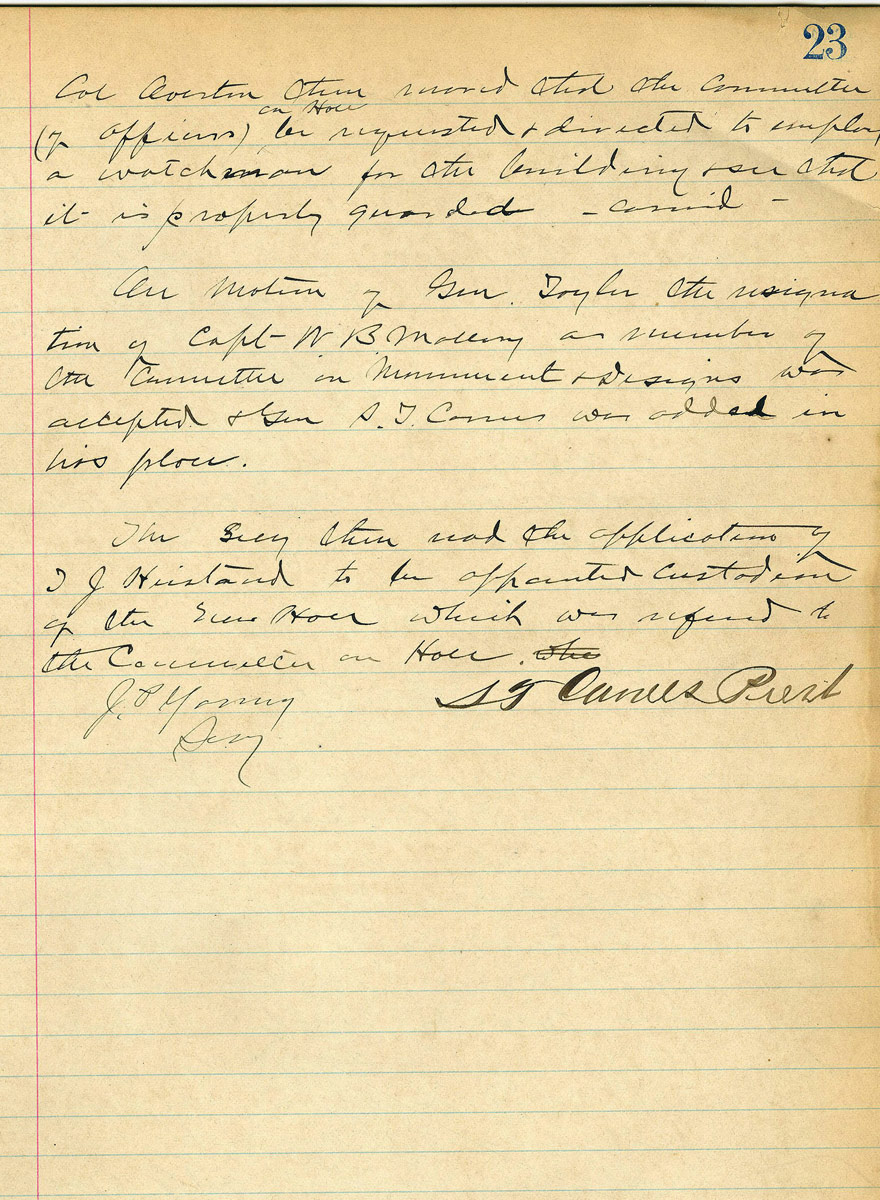 23
Col Overton then moved that the Committee
on Hall
(of officers) be requested & directed to employ
a watchman for the building & see that
it is properly guarded - carried -
On Motion of Gen. Taylor the resigna
tion of Capt W B Mallory as member of
the Committee on Monument & Designs was
accepted & Gen S. T. Carnes was added in
his place.
The Secy then read the application of
T J Hiestand to be appointed Custodian
of the Hall which was referred to
the Committee on Hall. the
J. P. Young
Secy
S T Carnes Prest